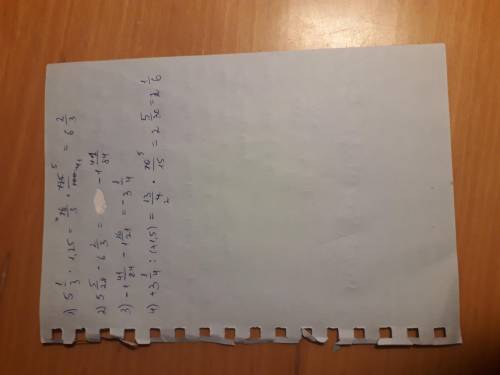 1) 5 1/3 · 1,25 = 16/3 · 125/100 = 6 2/3
2) 5 5/28 - 6 2/3 = - 1 41/84
3) - 1 41/84 - 1 16/21 = - 3 1/4
4) +3 1/4 : (+1,5) = 13/4 · 10/15 = 2 5/30 = 2 1/6